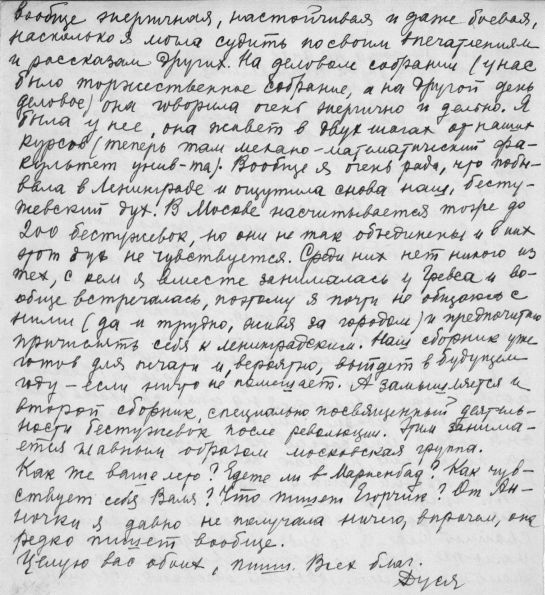 вообще энергичная, настойчивая и даже боевая,
насколько я могла судить по своим впечатлениям
и рассказам других. На деловом собрании (у нас
было торжественное собрание, а на другой день
деловое) она говорила очень энергично и дельно. Я
была у нее, она живет в двух шагах от наших
курсов (теперь там механо-математический фа-
культет унив-та). Вообще я очень рада, что побы-
вала в Ленинграде и ощутила снова наш, бесту-
жевский дух. В Москве насчитывается тоже до
200 бестужевок, но они не так объединены и в них
этот дух не чувствуется. Среди них нет никого из
тех, с кем я вместе занималась у Гревса и во-
обще встречалась, поэтому я почти не общаюсь с
ними (да и трудно, живя за городом) и предпочитаю
причислять себя к ленинградским. Наш сборник уже
готов для печати и, вероятно, выйдет в будущем
году – если ничто не помешает. А замышляется и
второй сборник, специально посвященный деятель-
ности бестужевок после революции. Этим занима-
ется главным образом московская группа.
Как же ваше лето? Едете ли в Мариенбад? Как чув-
ствует себя Валя? Что пишет Егорчик? От Ан-
ночки я давно не получала ничего, впрочем, она
редко пишет вообще.
Целую вас обоих, пиши. Всех благ.
Дуся